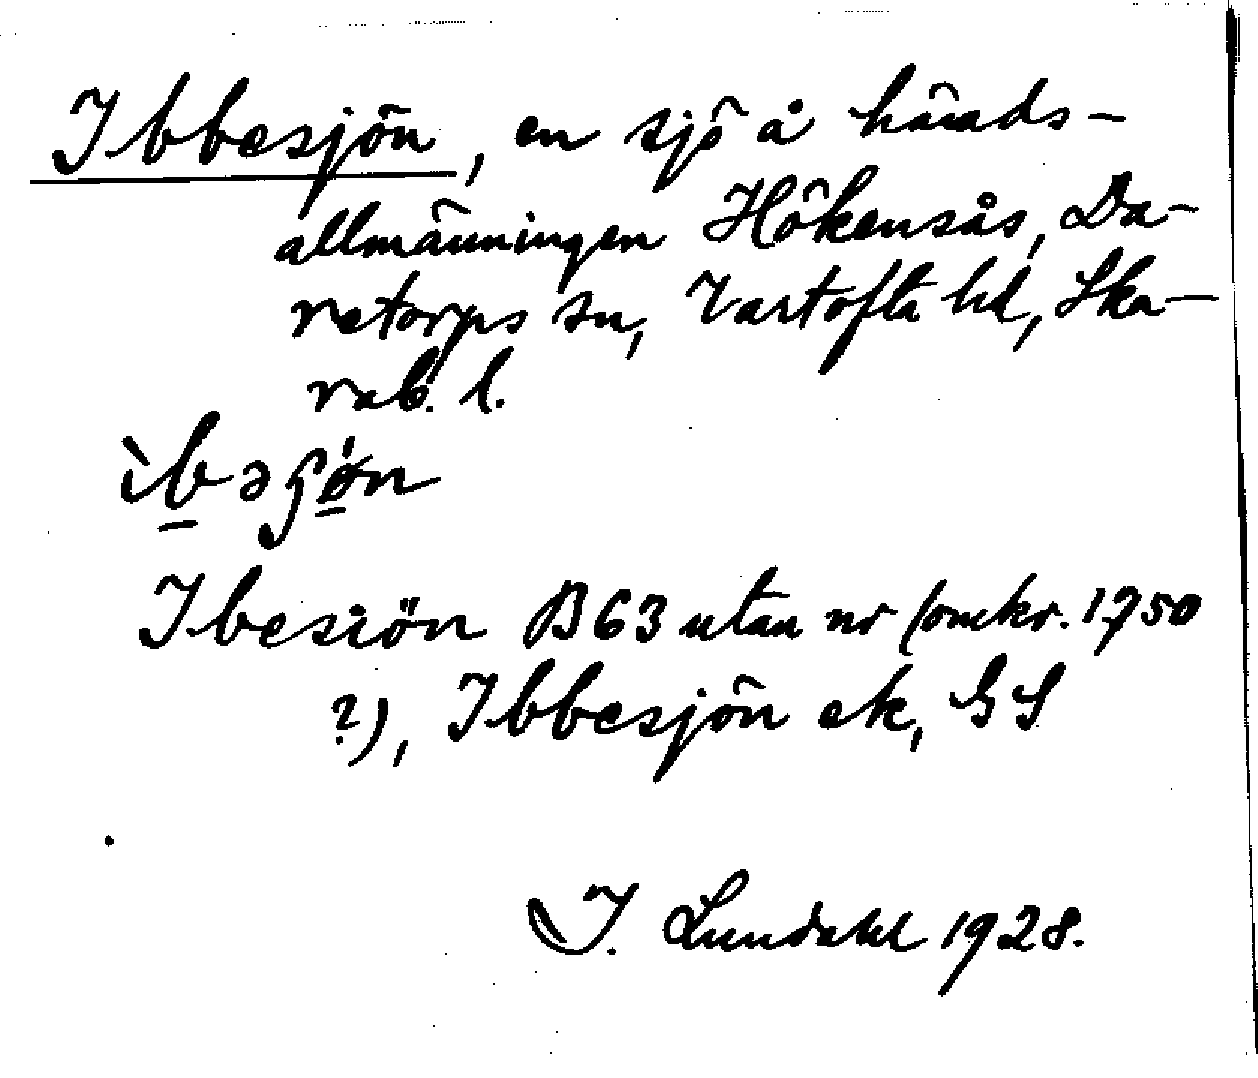 Ibbesjön, en sjö å härads-
allmänningen Hökensås, Da-
retorps sn, Vartofta hd, Ska-
rab. l.
Ibesiön B63 utan nr (omkr. 1750
?), Ibbesjön ek, GS
I. Lundahl 1928.